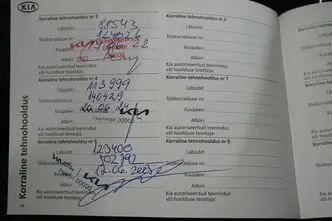 KIA
Korraline tehnohooldus
Korraline tehnohooldus nr 3
Läbisõit: 81543
Töökorralduse nr:
Kuupäev:
Allkiri:
Kia autoriseeritud teenindus
või hoolduse teostaja
Korraline tehnohooldus nr 4
Läbisõit: 113999
Töökorralduse nr: 140429
Kuupäev: 20.06.24
Allkiri:
Kia autoriseeritud teenindus
või hoolduse teostaja
Korraline tehnohooldus nr 5
Läbisõit: 123400
Töökorralduse nr:
Kuupäev:
Allkiri:
Kia autoriseeritud teenindus
või hoolduse teostaja
Korraline tehnohooldus nr 6
Läbisõit:
Töökorralduse nr:
Kuupäev:
Allkiri:
Kia autoriseeritud teenindus
või hoolduse teostaja
Korraline tehnohooldus nr 7
Läbisõit:
Töökorralduse nr:
Kuupäev:
Allkiri:
Kia autoriseeritud teenindus
või hoolduse teostaja
Korraline tehnohooldus nr 8
Läbisõit:
Töökorralduse nr:
Kuupäev:
Allkiri:
Kia autoriseeritud teenindus
või hoolduse teostaja